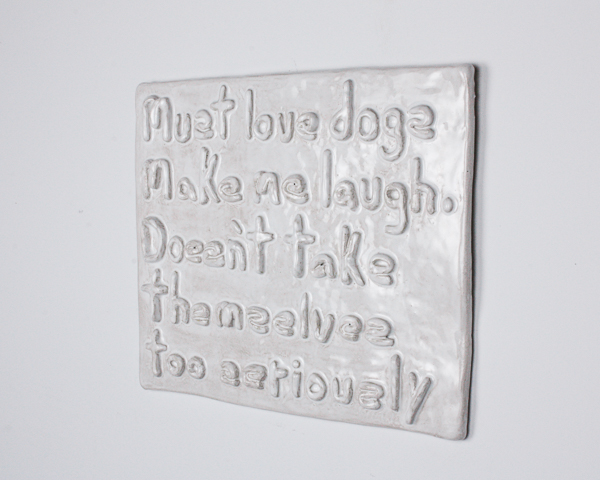 Must love dogs
Make me laugh.
Doesn't take
themselves
too seriously